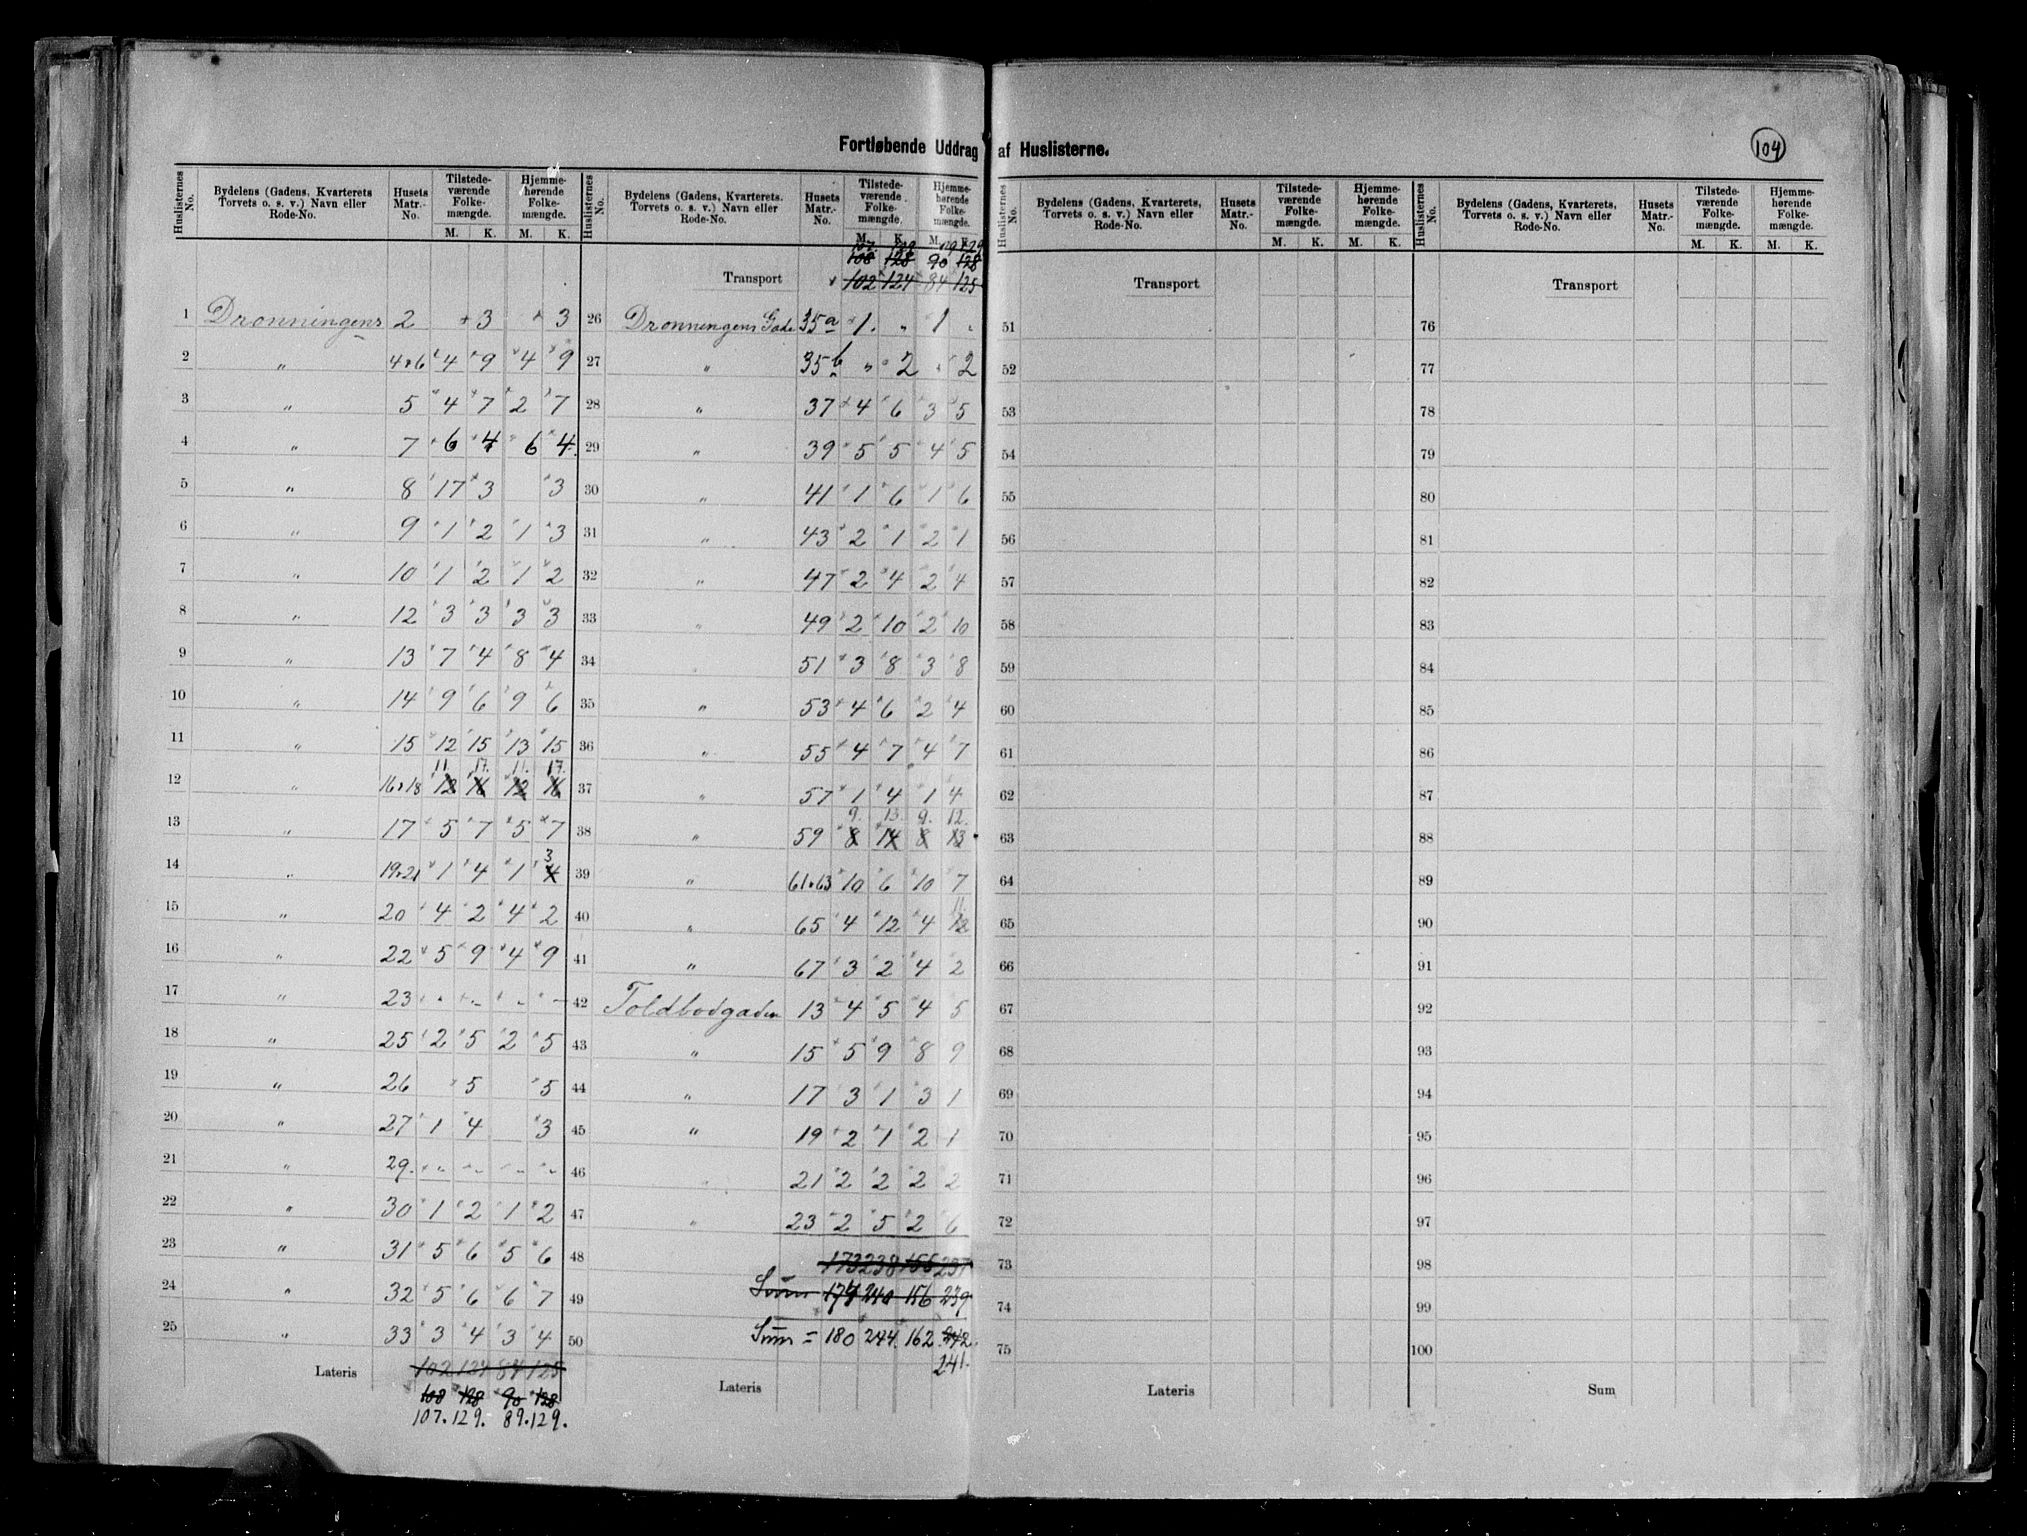 Fortløbende Uddrag af Huslisterne.
104
Huslisternes No. Bydelens (Gadens, Kvarterets Torvets o. s. v.) Navn eller Rode-No. Husets Matr.-No. Tilstedeværende Folkemængde. M. K. Hjemmehørende Folkemængde. M. K.
1 Dronningens 2 3 3
2 " 4 & 6 4 9 4 9
3 " 5 4 7 2 7
4 " 7 6 4 6 4
5 " 8 17 3 3
6 " 9 1 2 1 3
7 " 10 1 2 1 2
8 " 12 3 3 3 3
9 " 13 7 4 8 4
10 " 14 9 6 9 6
11 " 15 12 15 13 15
11. 17. 11. 17.
12 " 16 & 18 12 16 12 16
13 " 17 5 7 5 7
3
14 " 19 & 21 1 4 1 4
15 " 20 4 2 4 2
16 " 22 5 9 4 9
17 " 23 " " " "
18 " 25 2 5 2 5
19 " 26 5 5
20 " 27 1 4 3
21 " 29 " " " "
22 " 30 1 2 1 2
23 " 31 5 6 5 6
24 " 32 5 6 6 7
25 " 33 3 4 3 4
Lateris 102 124 84 125
108 128 90 128
107. 129. 89. 129.
Huslisternes No. Bydelens (Gadens, Kvarterets. Torvets o. s. v.) Navn eller Rode-No. Husets Matr.-No. Tilstedeværende Folkemængde. M. K. Hjemmehørende Folkemængde. M. K.
107. 129 89 129
108 128 90 128
Transport 102 124 84 125
26 Dronningens Gade 35a 1. " 1 "
27 " 35b " 2 2
28 " 37 4 6 3 5
29 " 39 5 5 4 5
30 " 41 1 6 1 6
31 " 43 2 1 2 1
32 " 47 2 4 2 4
33 " 49 2 10 2 10
34 51 3 8 3 8
35 " 53 4 6 2 4
36 " 55 4 7 4 7
37 " 57 1 4 1 4
9. 13. 9. 12.
38 " 59 8 14 8 13
39 " 61 & 63 10 6 10 7
11.
40 " 65 4 12 4 12
41 " 67 3 2 4 2
42 Toldbodgaden 13 4 5 4 5
43 " 15 5 9 8 9
44 " 17 3 1 3 1
45 " 19 2 1 2 1
46 " 21 2 2 2 2
47 " 23 2 5 2 6
48 173 238 155 237
49 Sum 174 240 156 239
50 Sum = 180 244. 162. 242.
241.
Lateris
Huslisternes No. Bydelens (Gadens, Kvarterets, Torvets o. s. v.) Navn eller Rode-No. Husets Matr.-No. Tilstedeværende Folkemængde. M. K. Hjemmehørende Folkemængde. M. K.
Transport
51
52
53
54
55
56
57
58
59
60
61
62
63
64
65
66
67
68
69
70
71
72
73
74
75
Lateris
Huslisternes No. Bydelens (Gadens, Kvarterets Torvets o. s. v.) Navn eller Rode-No. Husets Matr.-No. Tilstedeværende Folkemængde. M. K. Hjemmehørende Folkemængde. M. K.
Transport
76
77
78
79
80
81
82
83
84
85
86
87
88
89
90
91
92
93
94
95
96
97
98
99
100
Sum